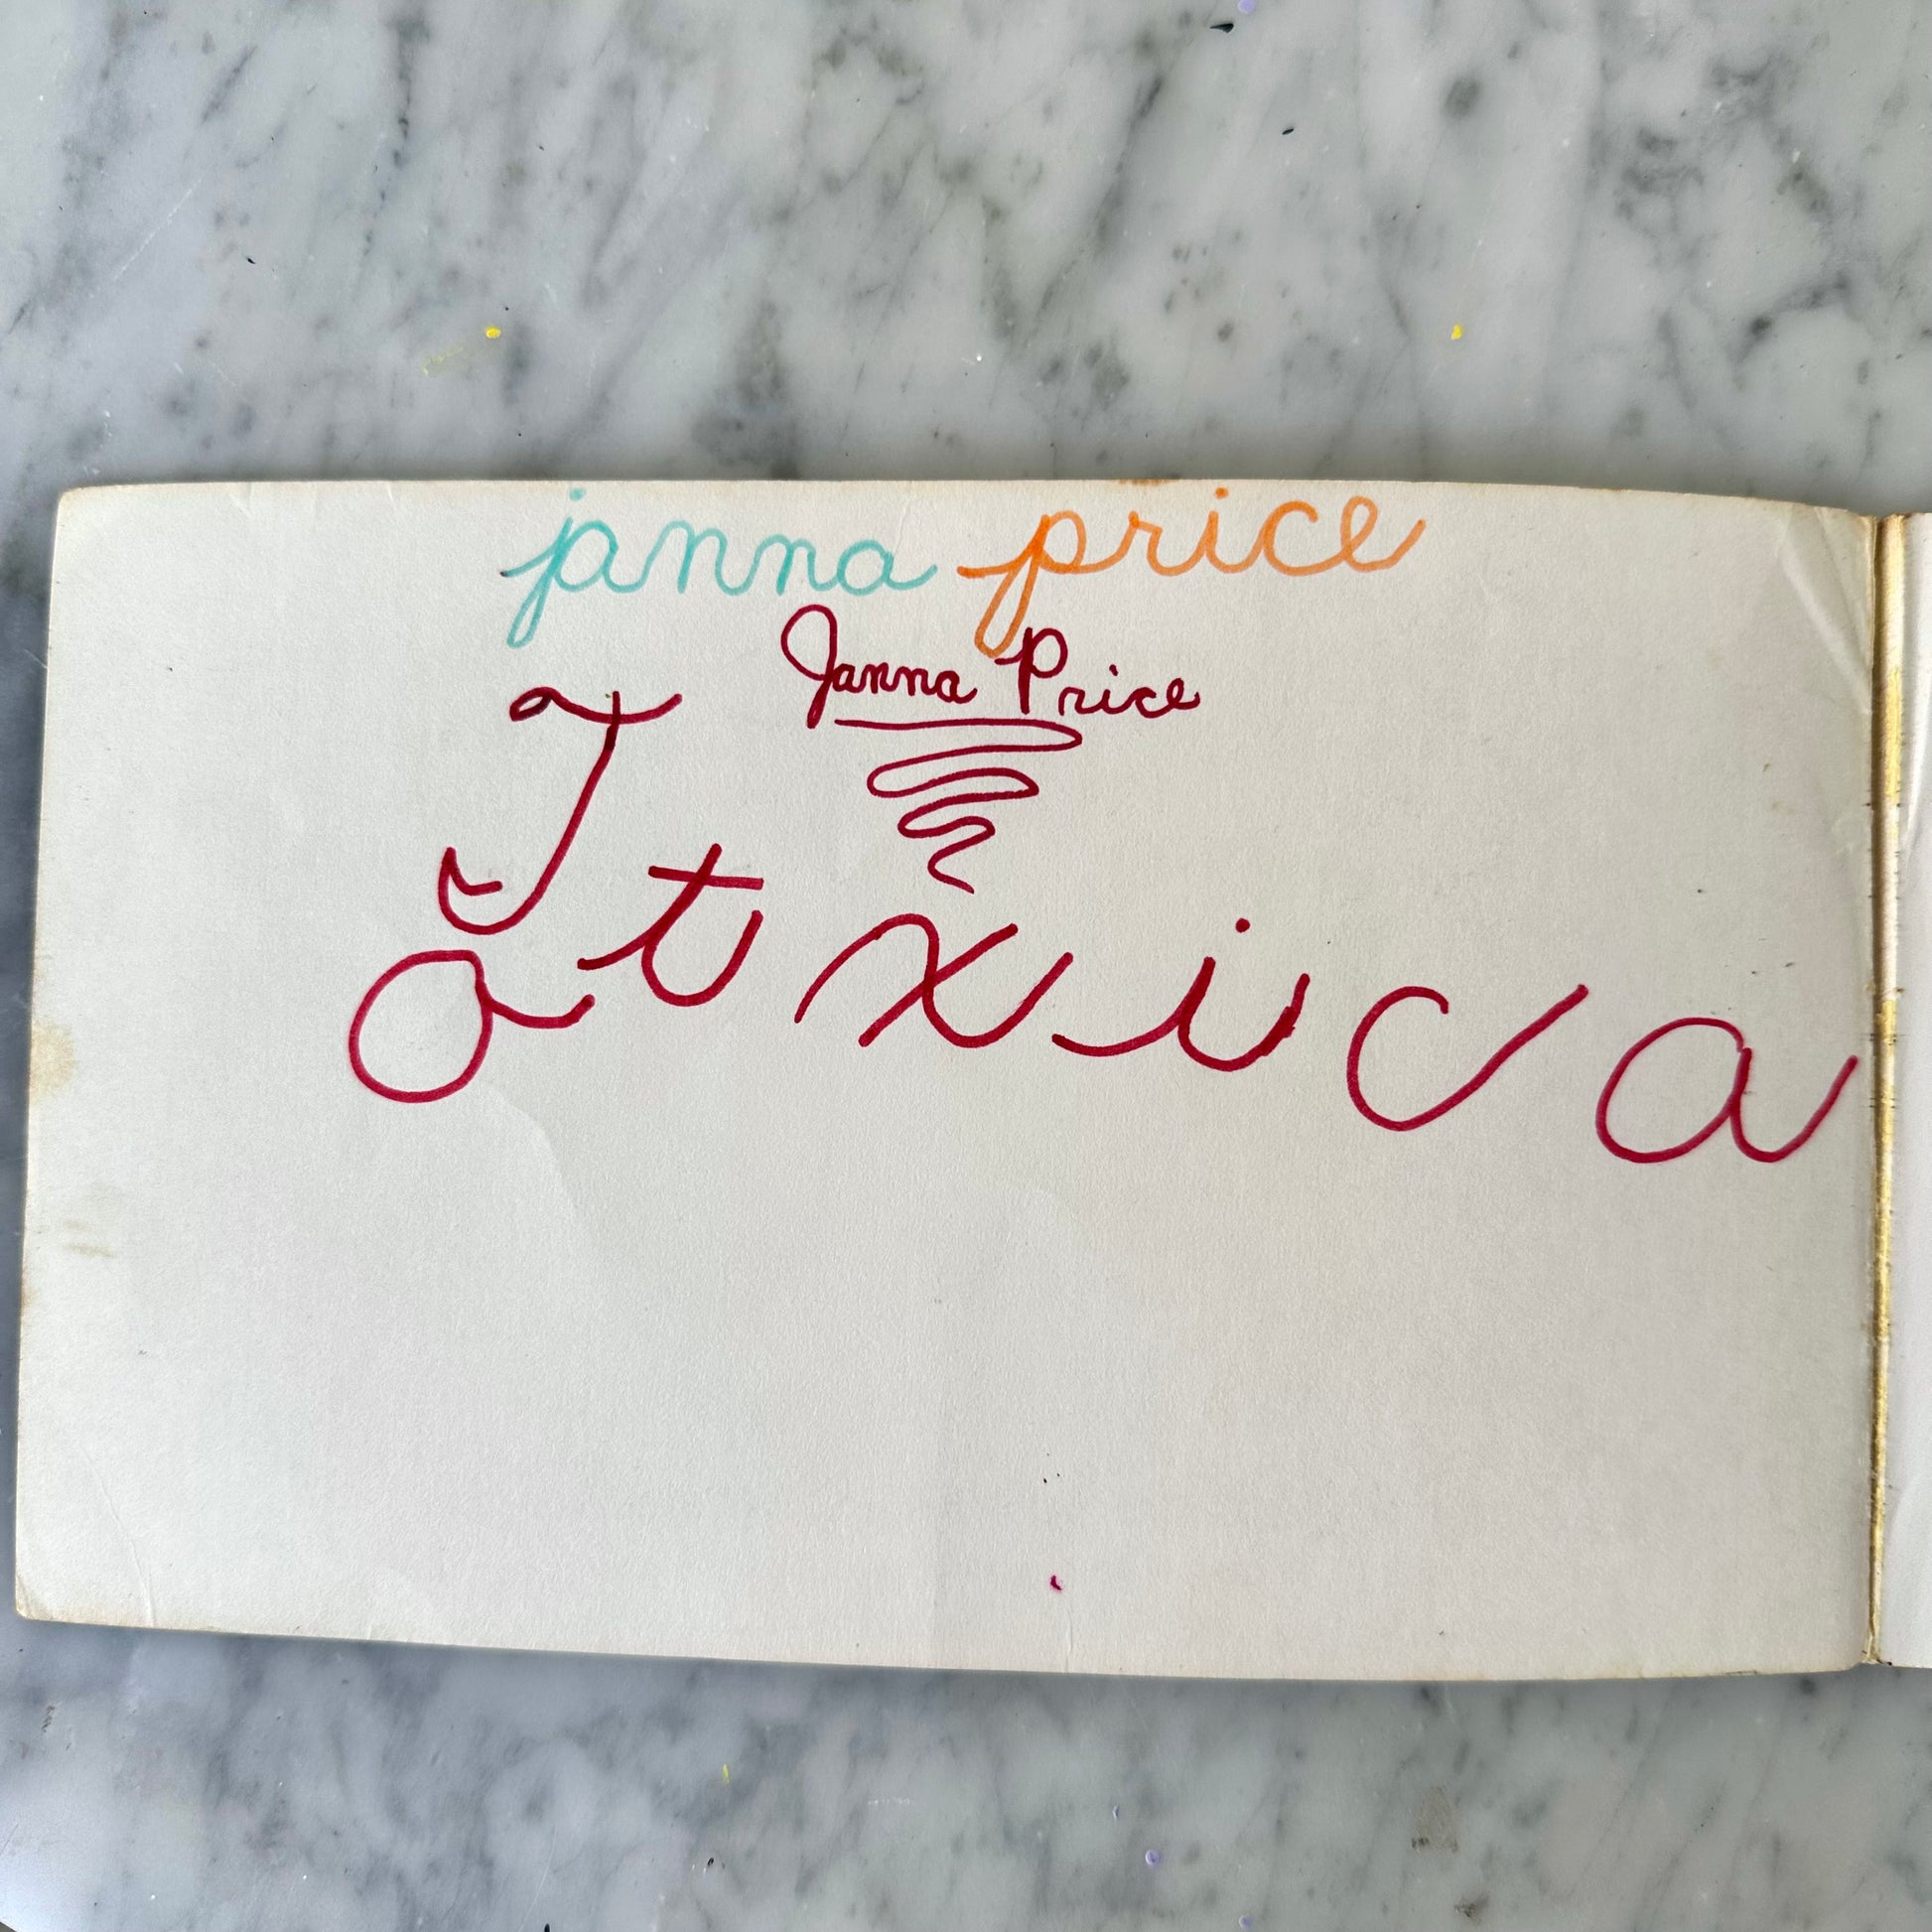 janna price
Janna Price
T
a t x i c a